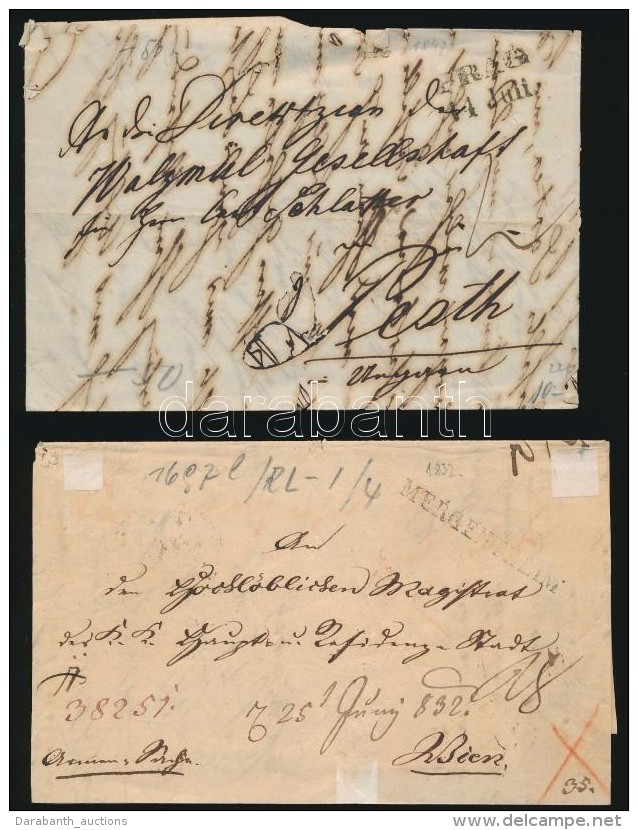 1842
PRAG
11 Juli
An die Direction der
Walzmül Gesellschaft
für Herrn Carl Schlatter
in
Pesth
Ungarn
50
10-
darabanth
1697 l /RL-1/4
1832-
MERGENTHEIM
An
den Hochlöblichen Magistrat
der K. K. Haupt- u. Residenz-Stadt
38251.
25 Juny 832.
Armen-Sache.
Wien.
35.
Darabanth_auctions
www.delcampe.net